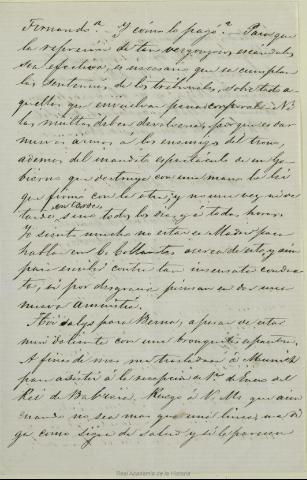 Fernando? Y cómo lo pagó? Para que
la represion de tan vergonzoso escándalo
sea efectiva, es necesario que se cumplan
las sentencias de los tribunales, sobre todo a
quellas que envuelvan penas corporales. Ni
las multas deben devolverse, porque es dar
nuevas armas a los enemigos del trono,
ademas del mandito espectaculo de un Go-
bierno que destruye con una mano la ley
que firma con la otra; y no una vez aisla
tarde, sino todos los dias, y á todas horas.
Yo siento mucho no estar en Madrid para
hablar en las Cortes acerca de esto, y aun
para escribir contra tan insensata conduc-
ta, si por desgracia piensan en dar una
nueva amnistia.
Hoi salgo para Berna, a pesar de estar
mui doliente con una bronquitis espantosa.
A fines de mes me trasladaré á Munich
para asistir á la recepcion de 1º de Enero del
Rei de Baviera. Ruego á V. M. que aun
cuando no sea mas que una linea, me di
ga como sigue de salud y si le parecen
Real Academia de la Historia